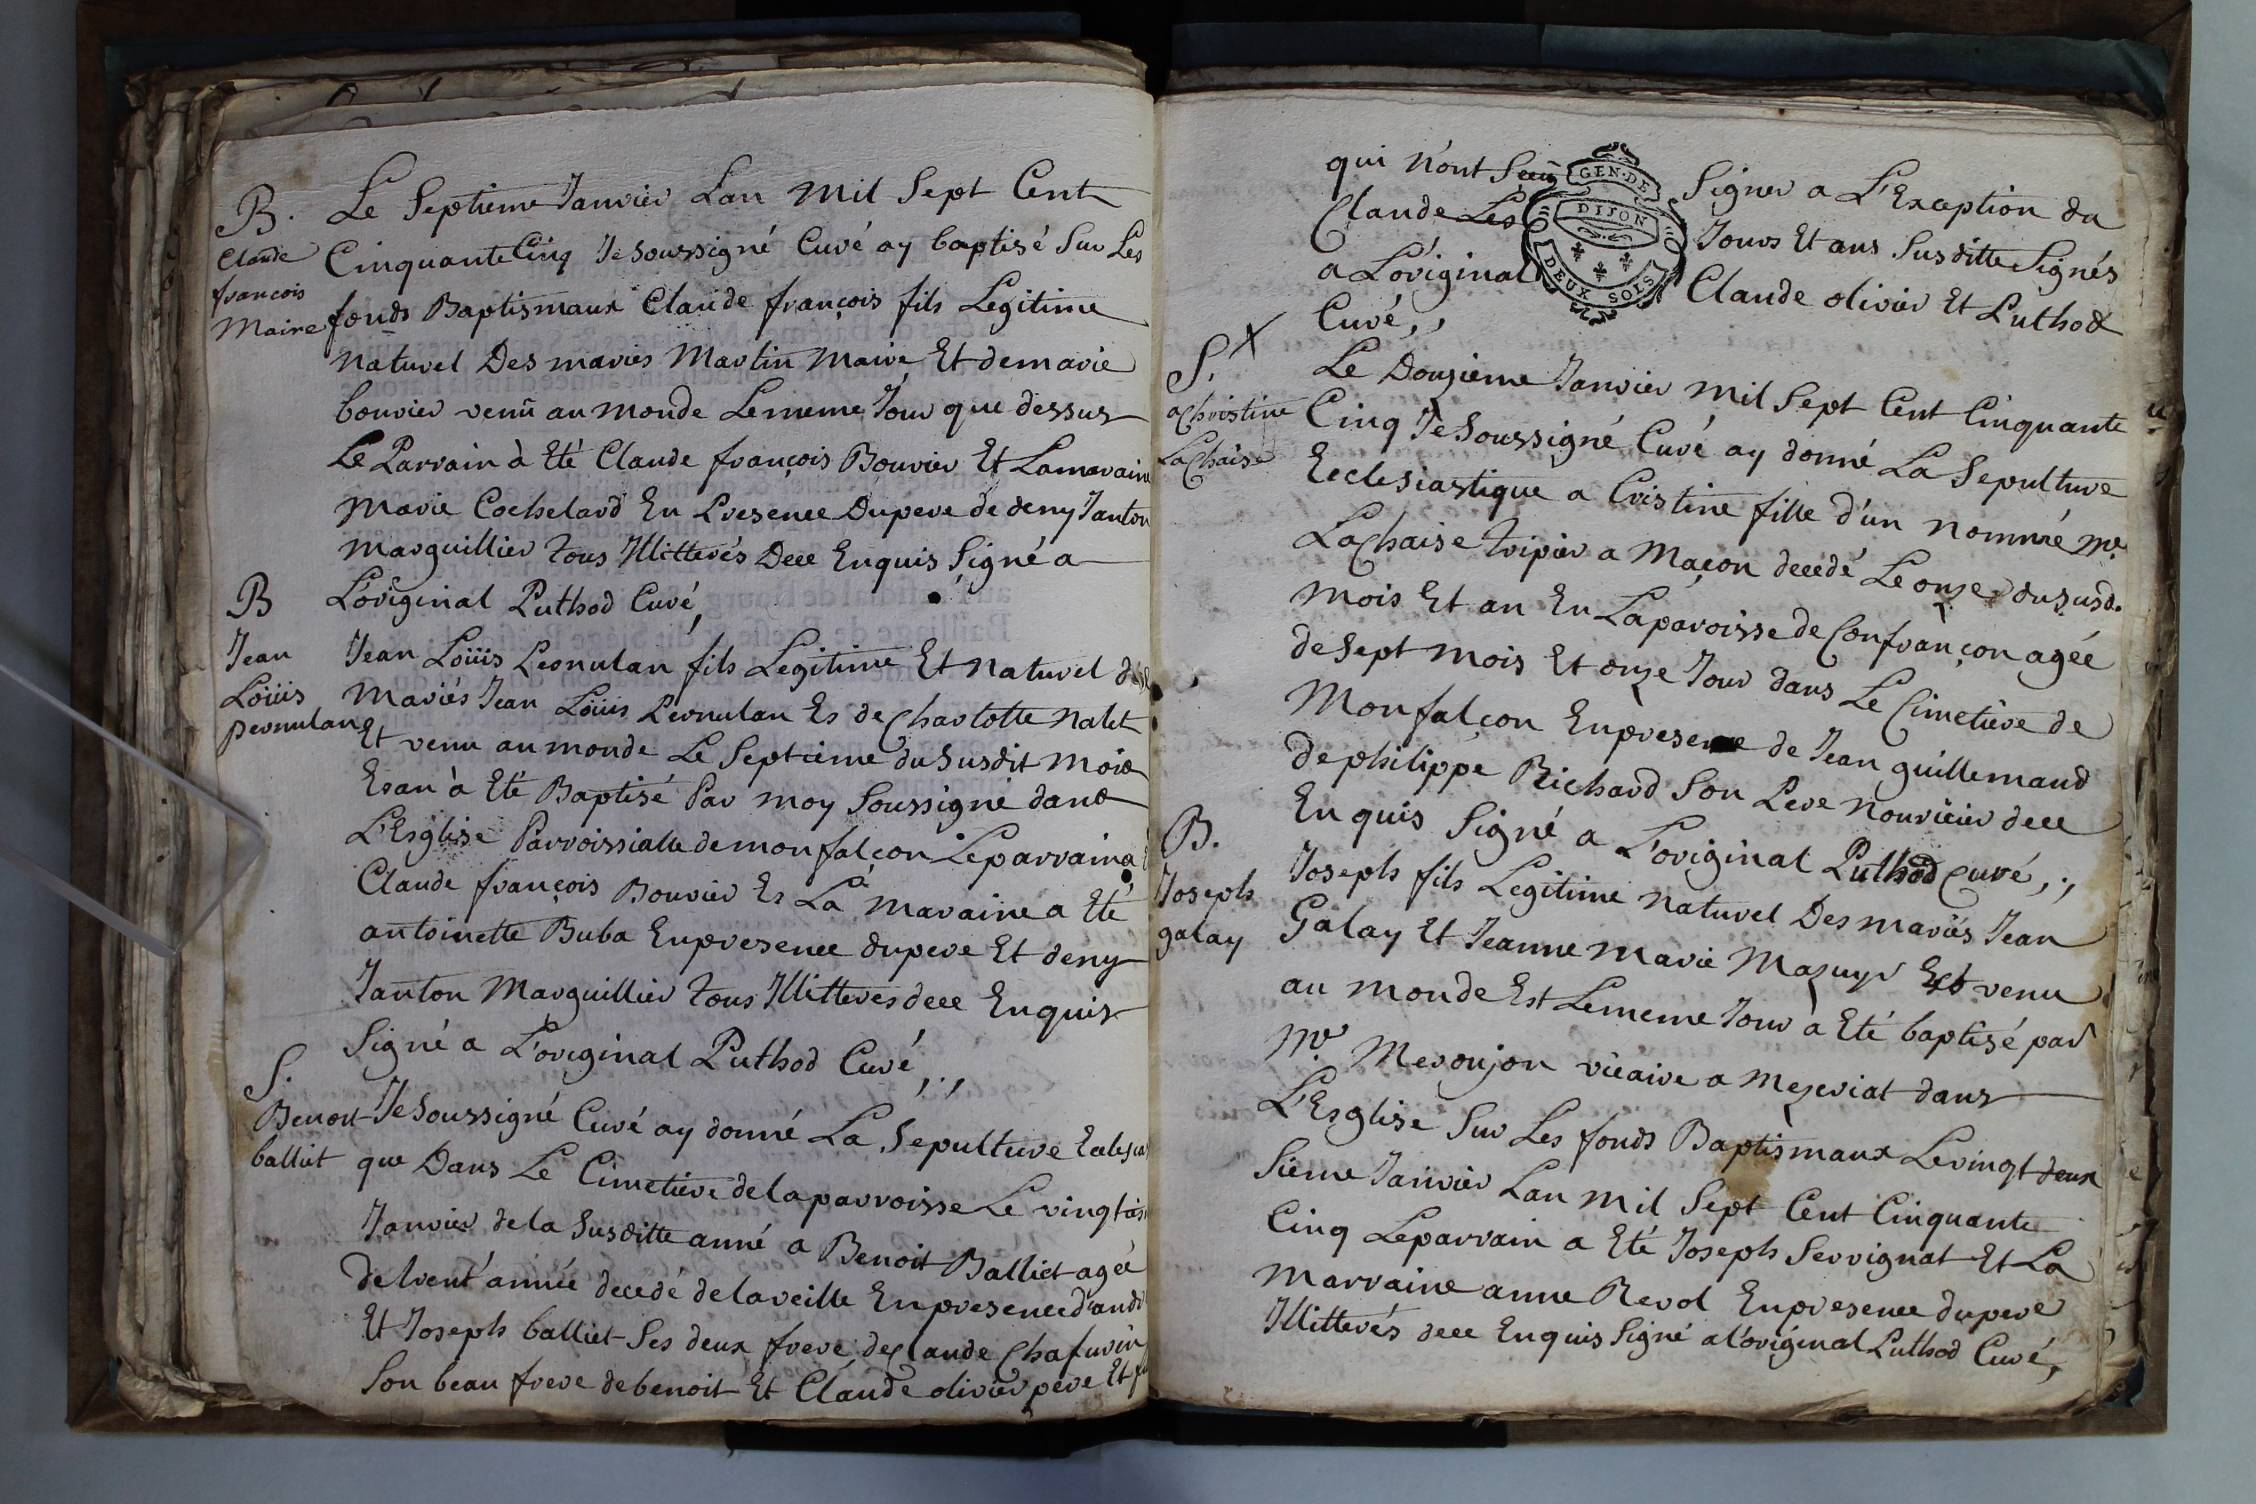 B.
Claude
françois
Maire
Le Septieme Janvier Lan Mil Sept Cent
Cinquante Cinq Je Soussigné Curé ay baptisé Sur Les
fonds Baptismaux Claude françois fils Legitime
naturel Des mariés Martin Maire Et de marie
bouvier venu au monde Le meme Jour que dessus
Le Parrain à Eté Claude françois Bouvier Et La maraine
Marie Cochelard En Presence Du pere de deny Janton
Marguillier tous Illitterés De ce Enquis Signé a
L'original Puthod Curé,
B
Jean
Loüis
pernulan
Jean Loüis Pernulan fils Legitime Et naturel des
Mariés Jean Loüis Pernulan Es de Charlotte nalet
Et venu au monde Le Septieme du Susdit Mois
Es an à Eté Baptisé Par moy Soussigné dans
L'Esglise Parroissialle de monfalçon Le parrain a
Claude françois Bouvier Es La maraine a Eté
antoinette Buba En presence du pere Et deny
Janton Marguillier tous Illitterés de ce Enquis
Signé a L'original Puthod Curé,
S.
Benoit
balliet
Je Soussigné Curé ay donné La Sepulture
que Dans Le Cimetiere de la parroisse Le
Janvier de la Susditte anné a Benoit Balliet agée
de trent' année decedé de la veille En presence
Et Joseph balliet Ses deux frere de Claude Chafurin
Son beau frere de benoit Et Claude olivier pere Et
qui n'ont Signer a L'Exception du
Claude Les Jours Et ans Susditte Signés
a L'original Claude olivier Et Puthod
Curé,,
GEN. DE
DIJON
DEUX SOLS
S. X
a Christine
La Chaise
Le Douzieme Janvier Mil Sept Cent Cinquante
Cinq Je Soussigné Curé ay donné La Sepulture
Ecclesiastique a Cristine fille d'un nommé Mr.
La Chaise tripier a Maçon decedé Le onze du susd.
mois Et an En La paroisse de Confrançon agée
de Sept mois Et onze Jour dans Le Cimetiere de
Monfalçon En presence de Jean guillemaud
de philippe Richard Son Pere nouricier de ce
En quis Signé a L'original Puthod Curé,.,
B.
Joseph
galay
Joseph fils Legitime naturel Des mariés Jean
Galay Et Jeanne Marie Mazuyr Est venu
au monde Est Le meme Jour à Eté baptisé par
Mr. Meroujon vicaire a Mezeriat dans
L'Esglise Sur Les fonds Baptismaux Le vingt deux
Sieme Janvier Lan Mil Sept Cent Cinquante
Cinq Le parrain a Eté Joseph Servignat Et La
marraine anne Revol En presence du pere
Illitterés de ce Enquis Signé a l'original Puthod Curé,